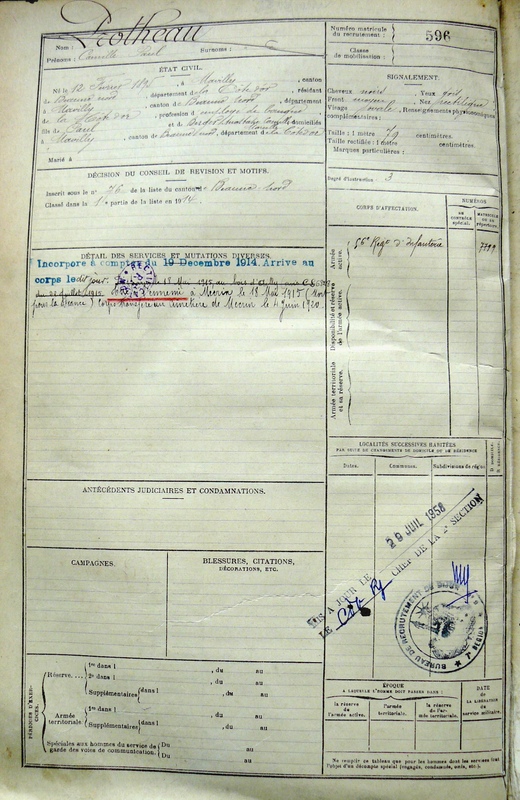 Protheau
Nom :
Prénoms : Camille Paul
Surnoms :
Numéro matricule du recrutement :
596
Classe de mobilisation :
ÉTAT CIVIL.
Né le 12 Février 1894, à Mavilly, canton
de Beaune nord, département de la Côte d'or, résidant
à Mavilly, canton de Beaune Nord, département
de la Côte d'or, profession de
fils de Paul et de domiciliés
à Mavilly, canton de Beaune nord, département de la Côte d'or
Marié à
SIGNALEMENT.
Cheveux noirs Yeux
Front moyen Nez rectiligne
Visage ovale Renseignements physionomiques
complémentaires :
Taille : 1 mètre 79 centimètres.
Taille rectifiée : 1 mètre centimètres.
Marques particulières :
DÉCISION DU CONSEIL DE REVISION ET MOTIFS.
Inscrit sous le n° 76 de la liste du canton de Beaune Nord
Classé dans la 1e partie de la liste en 1914
Degré d'instruction : 3
CORPS D'AFFECTATION.
NUMÉROS
DE CONTRÔLE spécial.
MATRICULE ou du répertoire.
Armée active.
56e Reg. d'Infanterie
Disponibilité et réserve de l'armée active.
Armée territoriale et sa réserve.
DÉTAIL DES SERVICES ET MUTATIONS DIVERSES.
Incorporé à compter du 19 Décembre 1914. Arrivé au
corps le dit jour. 18 Mai 1915 au bois d'Ailly
du 28 juillet 1915 l'ennemi à Mécrin le 18 Mai 1915 (Mort
pour la France) corps transféré au cimetière de Mécrin le 4 Juin 1920.
LOCALITÉS SUCCESSIVES HABITÉES
PAR SUITE DE CHANGEMENTS DE DOMICILE OU DE RÉSIDENCE
Dates.
Communes.
Subdivisions de région
ANTÉCÉDENTS JUDICIAIRES ET CONDAMNATIONS.
MIS A JOUR LE 29 JUIL 1958
LE CHEF DE LA 2e SECTION
BUREAU DE RECRUTEMENT DE DIJON
CAMPAGNES.
BLESSURES, CITATIONS,
DÉCORATIONS, ETC.
PÉRIODES D'EXERCICES.
Réserve.
1re dans l , du au
2e dans l , du au
Supplémentaires dans l , du au
Armée territoriale
1re dans l , du au
Supplémentaires dans l , du au
Spéciales aux hommes du service de garde des voies de communication.
Du au
Du au
ÉPOQUE
A LAQUELLE L'HOMME DOIT PASSER DANS :
la réserve de l'armée active.
l'armée territoriale.
la réserve de l'armée territoriale.
DATE de LA LIBÉRATION du service militaire.
Ne remplir ce tableau que pour les hommes dont les services font
l'objet d'un décompte spécial (engagés, condamnés, omis, etc.)